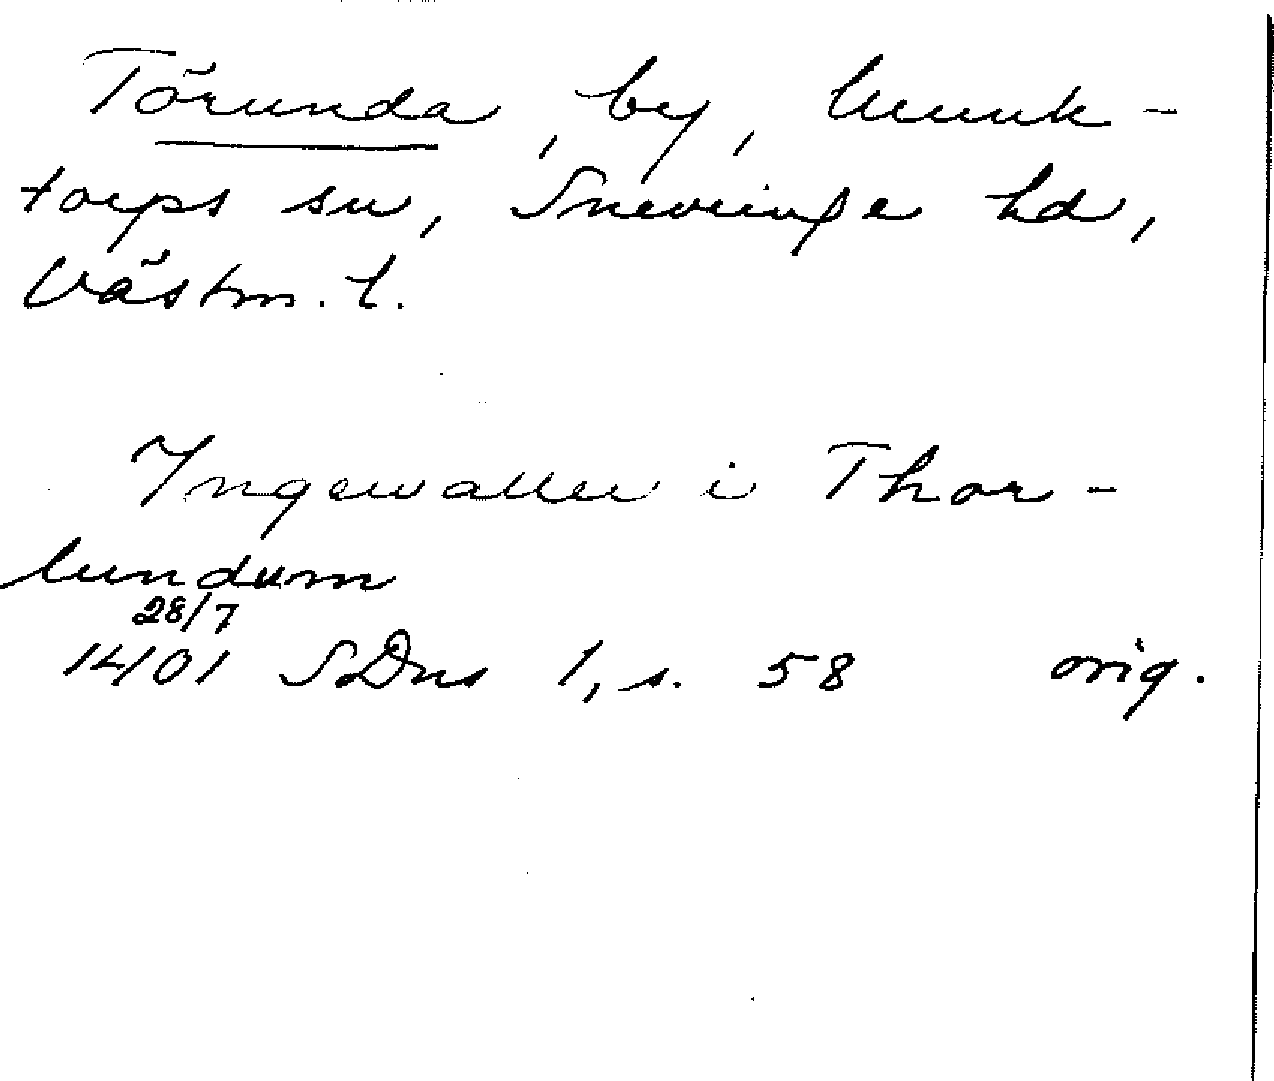 Törunda, by, Munk-
torps sn, Snevringe hd,
Västm. l.
Ingewaller i Thor-
lundum
28/7
1401 SDns 1, s. 58 orig.